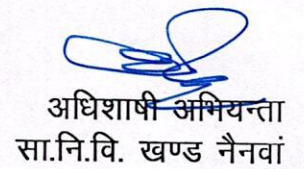 अधिशाषी अभियन्ता
सा.नि.वि. खण्ड नैनवां